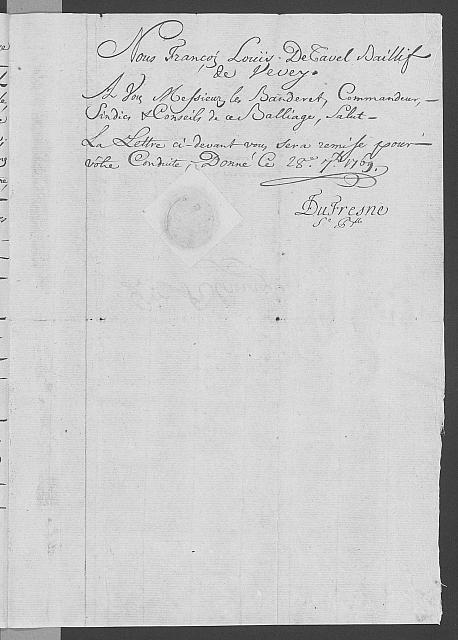 Nous François Louïs DeTavel Baillif
de Vevey.
A Vou Messieurs les Banderet, Commandeur,
Sindics & Conseils de ce Balliage, Salut
La Lettre ci-devant vous sera remise pour
votre Conduite, Donné Ce 28e. 7bre 1769.
DuFresne